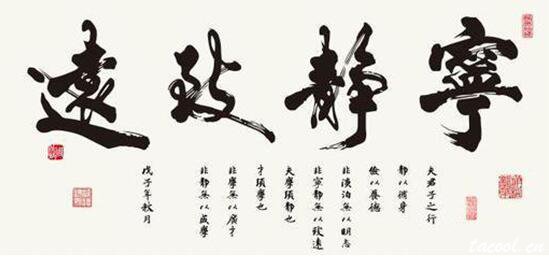 寧靜致遠
夫君子之行
靜以修身
儉以養德
非淡泊無以明志
非寧靜無以致遠
夫學須靜也
才須學也
非學無以廣才
非靜無以成學
戊子年秋月
tacool.cn